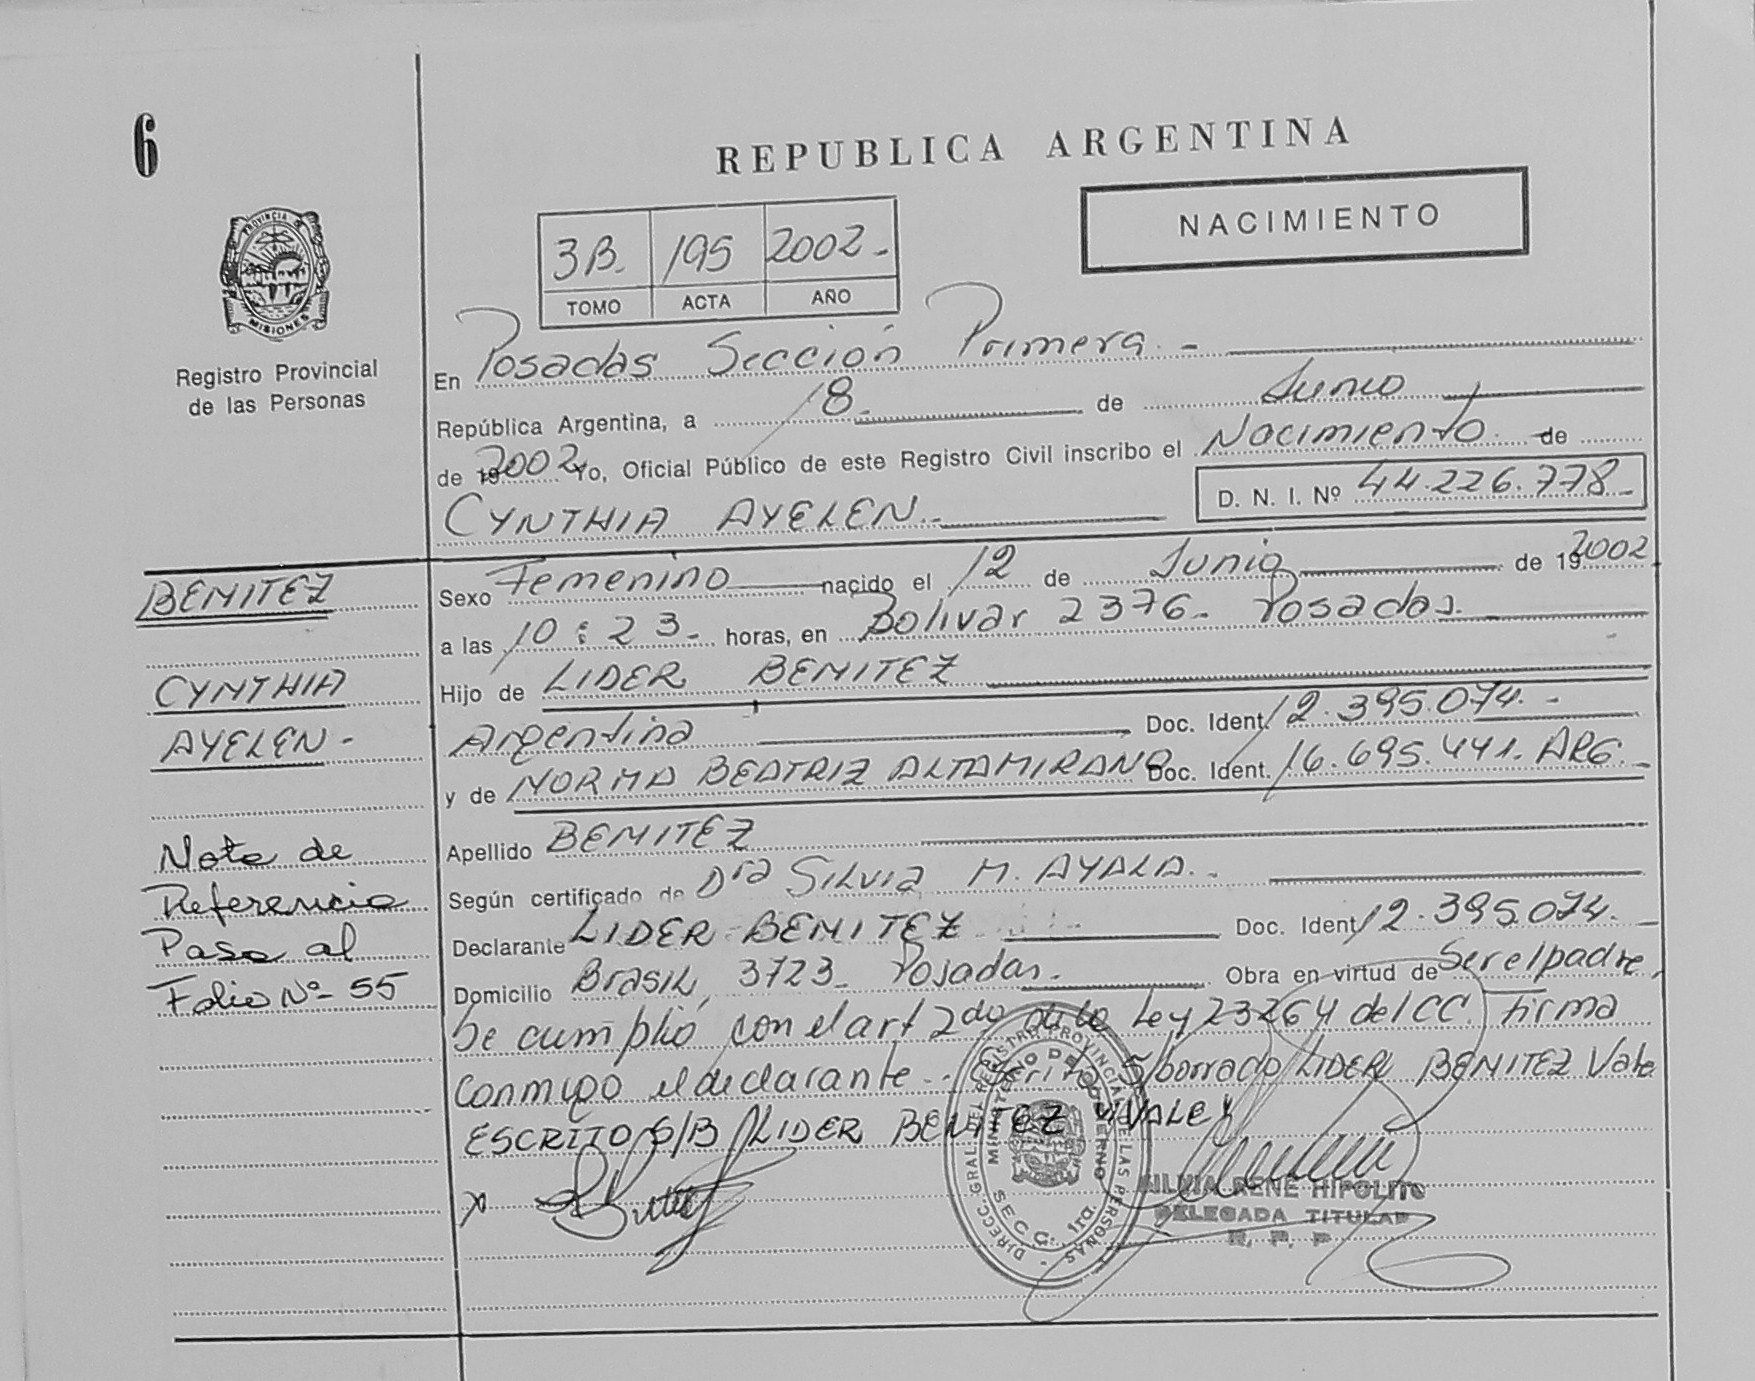 6
REPUBLICA ARGENTINA
NACIMIENTO
3B. 195 2002.-
TOMO ACTA AÑO
PROVINCIA DE MISIONES
Registro Provincial
de las Personas
En Posadas Sección Primera.-
República Argentina, a 18. de Junio
de 2002 Yo, Oficial Público de este Registro Civil inscribo el Nacimiento de
D. N. I. Nº 44.226.778.-
CYNTHIA AYELEN.-
BENITEZ
CYNTHIA
AYELEN-
Nota de
Referencia
Pasa al
Folio Nº- 55
Sexo Femenino nacido el 12 de Junio de 19 2002
a las 10:23.- horas, en Bolivar 2376- Posadas.
Hijo de LIDER BENITEZ
Argentina Doc. Ident. 12.395.074.-
y de NORMA BEATRIZ ALTAMIRANO Doc. Ident. 16.695.441. ARG.-
Apellido BENITEZ
Según certificado de Dra SILVIA M. AYALA.-
Declarante LIDER BENITEZ Doc. Ident. 12.395.074.-
Domicilio Brasil, 3723- Posadas.- Obra en virtud de Ser el padre,
Se cumplió con el art 2do de la Ley 23264 del CC. Firma
conmigo el declarante.- Escrito S/borrado/LIDER BENITEZ Vale
ESCRITO S/B/LIDER BENITEZ VALE
DIRECC. GRAL. DEL REGISTRO PROVINCIAL DE LAS PERSONAS
MINISTERIO DE GOBIERNO
SECC. 1ra.
SILVIA RENE HIPOLITO
DELEGADA TITULAR
R. P. P.